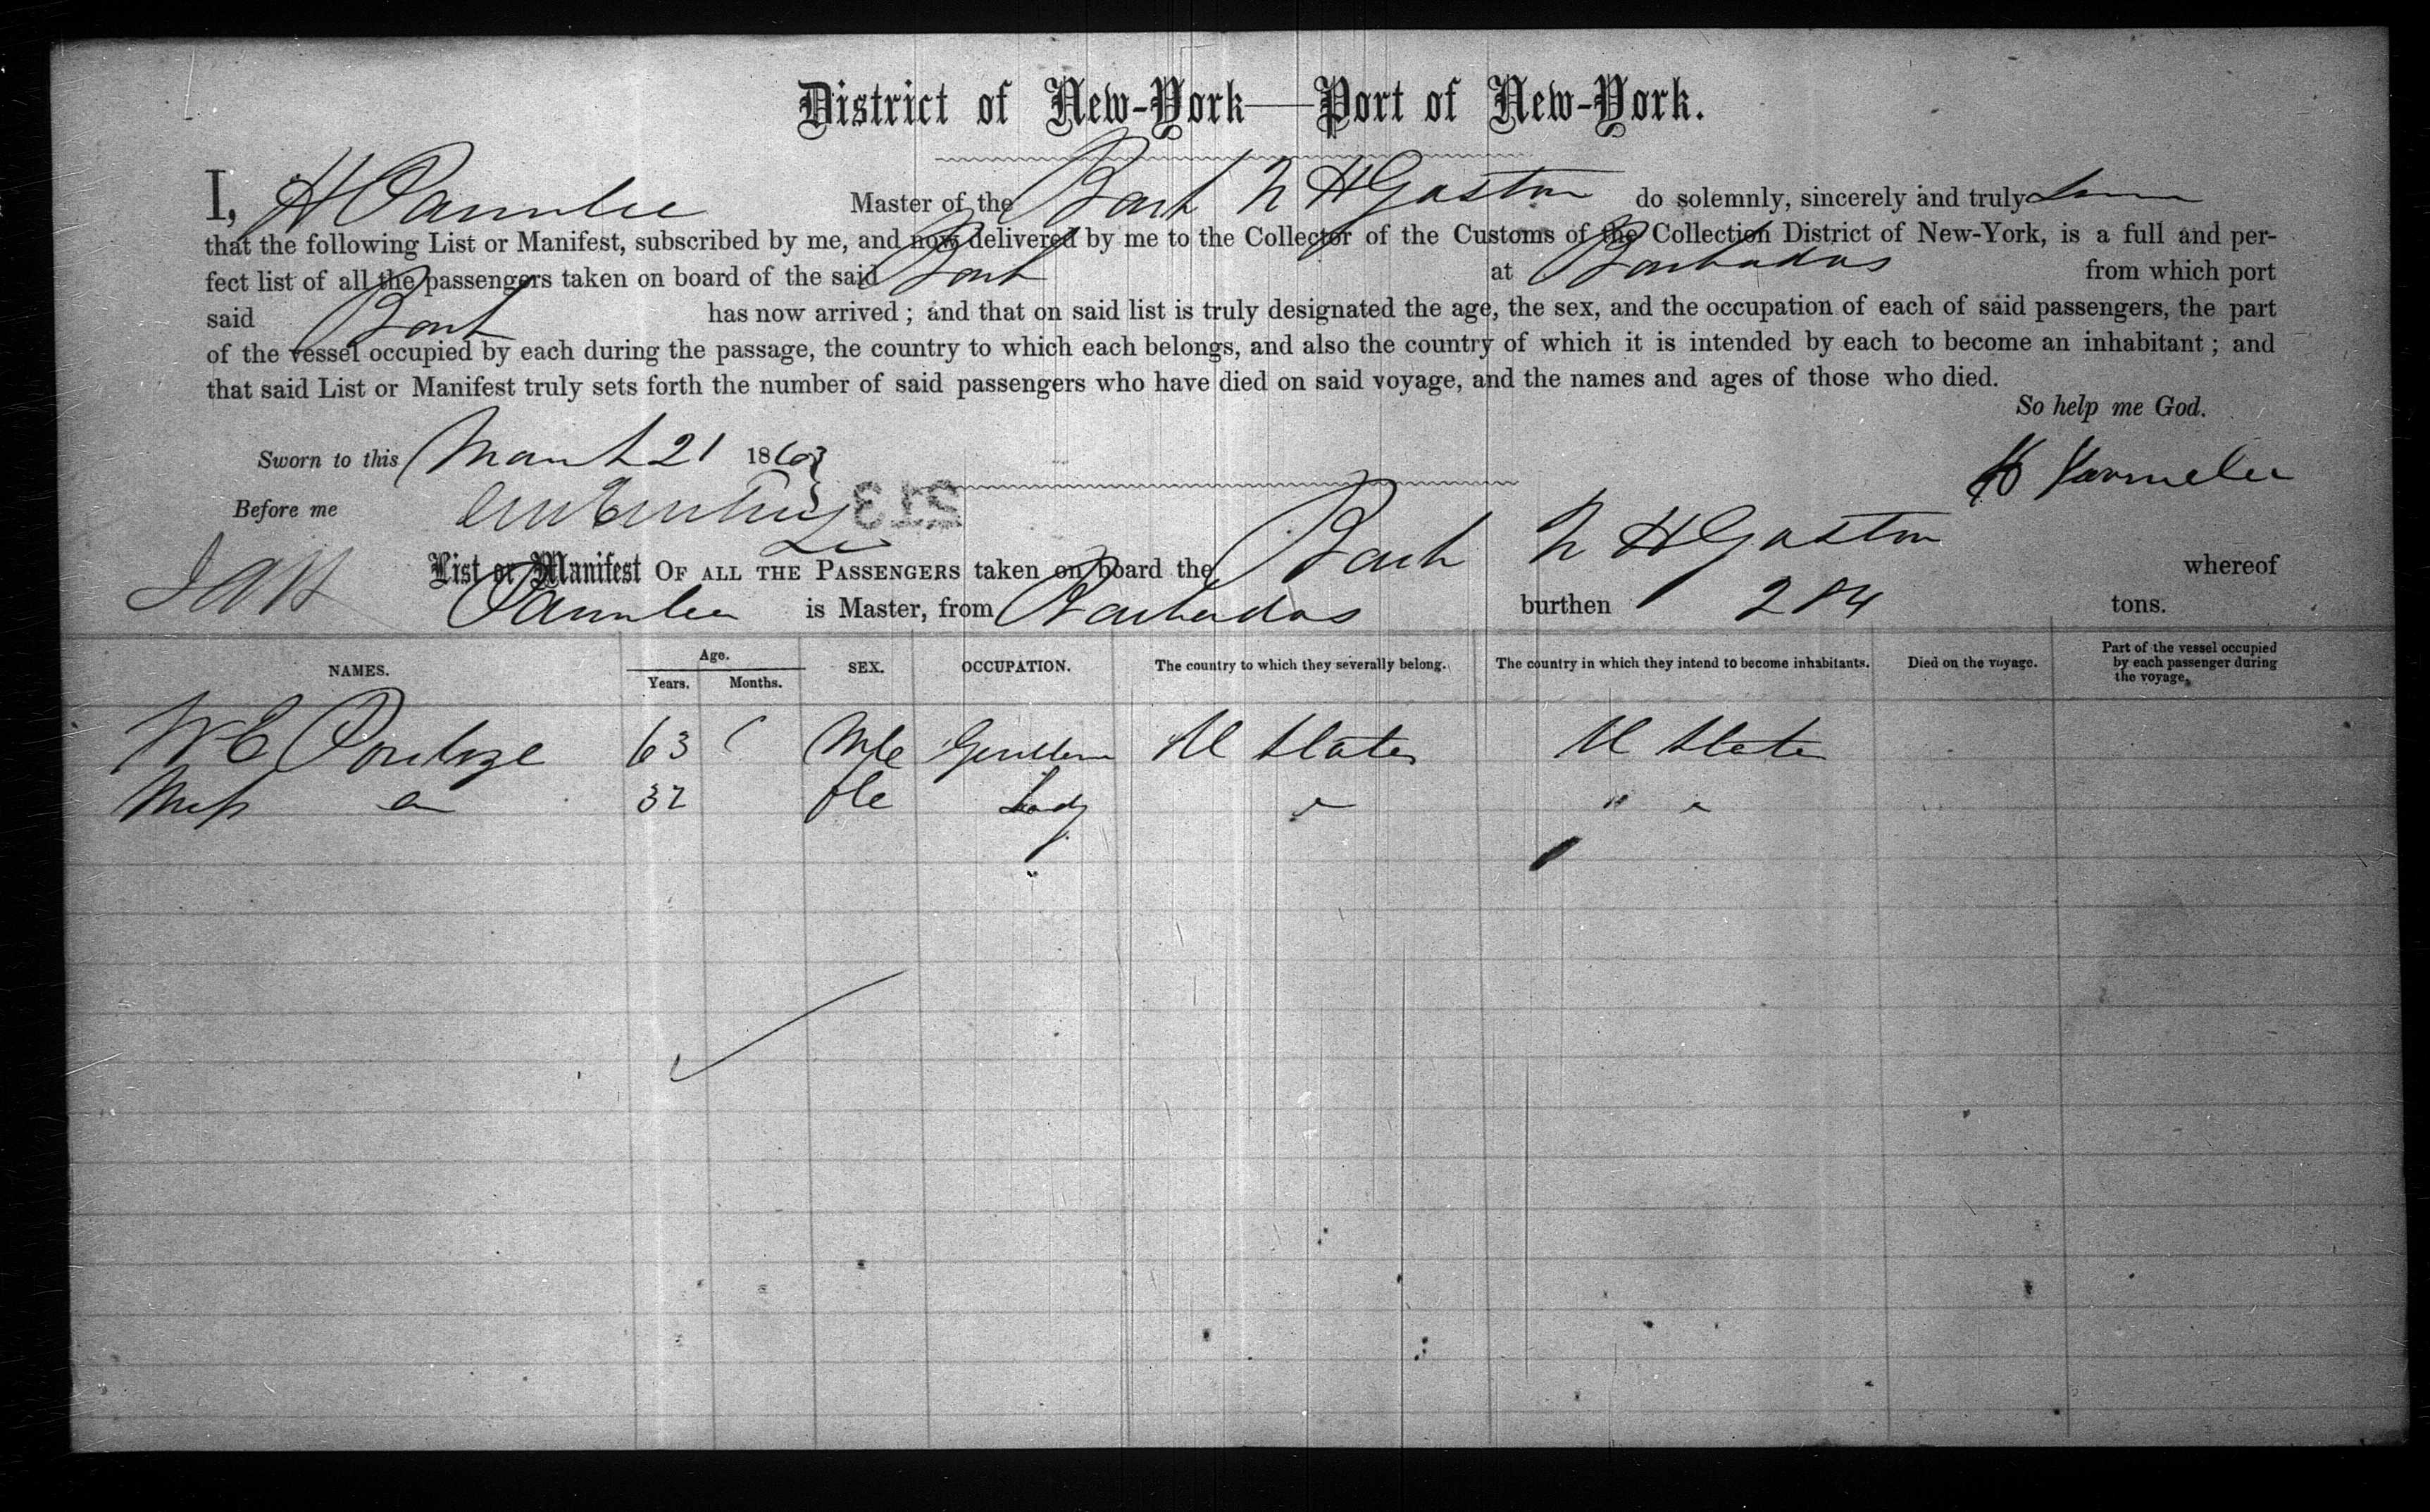 District of New-York—Port of New-York.
I, H Parmelee Master of the Bark N H Gaston do solemnly, sincerely and truly
that the following List or Manifest, subscribed by me, and now delivered by me to the Collector of the Customs of the Collection District of New-York, is a full and per-
fect list of all the passengers taken on board of the said Bark at Barbados from which port
said Bark has now arrived ; and that on said list is truly designated the age, the sex, and the occupation of each of said passengers, the part
of the vessel occupied by each during the passage, the country to which each belongs, and also the country of which it is intended by each to become an inhabitant ; and
that said List or Manifest truly sets forth the number of said passengers who have died on said voyage, and the names and ages of those who died.
So help me God.
Sworn to this March 21 1863
H Parmelee
Before me
213
List or Manifest OF ALL THE PASSENGERS taken on board the Bark N H Gaston whereof
Parmelee is Master, from Barbados burthen 284 tons.
NAMES. Age. Years. Months. SEX. OCCUPATION. The country to which they severally belong. The country in which they intend to become inhabitants. Died on the voyage. Part of the vessel occupied by each passenger during the voyage.
W E 63 Mle Gentlem U States U State
32 fle Lady " " "